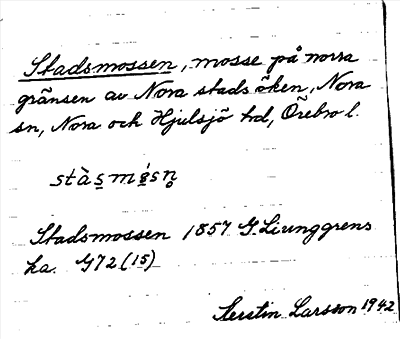 Stadsmossen, mosse på norra
gränsen av Nora stads öken, Nora
sn, Nora och Hjulsjö hd, Örebro l.
Stadsmossen 1857 G. Liunggrens
ka. G72 (15)
Kerstin Larsson 1942